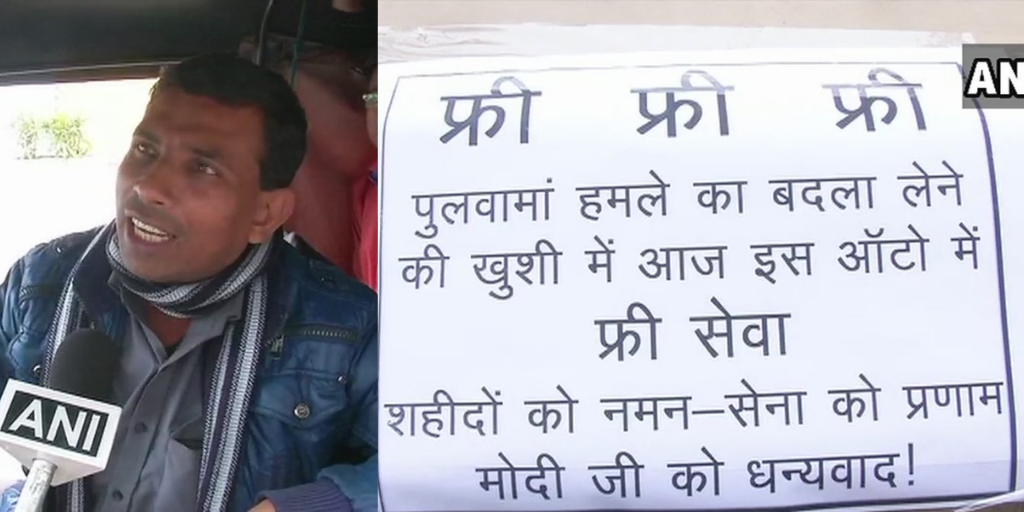 ANI
AN
फ्री फ्री फ्री
पुलवामां हमले का बदला लेने
की खुशी में आज इस ऑटो में
फ्री सेवा
शहीदों को नमन–सेना को प्रणाम
मोदी जी को धन्यवाद!